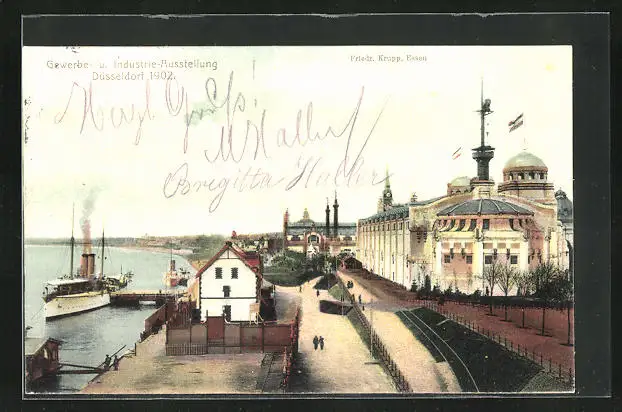 Gewerbe- u. Industrie-Ausstellung
Düsseldorf 1902.
Friedr. Krupp, Essen
Herzl. Gruß!
Brigitta